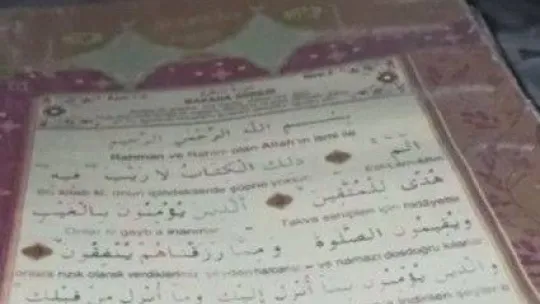 BAKARA SÛRESİ
بِسْمِ اللَّهِ الرَّحْمَٰنِ الرَّحِيمِ
Rahman ve Rahim olan Allah'ın ismi ile
الٓمٓ ذَٰلِكَ الْكِتَابُ لَا رَيْبَ فِيهِ
Bu kitap ki, onun içindekilerde şüphe yoktur.
هُدًى لِلْمُتَّقِينَ الَّذِينَ يُؤْمِنُونَ بِالْغَيْبِ
Takva sahipleri için hidayettir
Onlar ki gayb'a inanırlar
وَيُقِيمُونَ الصَّلَوةَ وَمِمَّا رَزَقْنَاهُمْ يُنْفِقُونَ
ve namazı dosdoğru kılarlar
rızık olarak verdiklerimiz şeyden harcarlar
وَالَّذِينَ يُؤْمِنُونَ بِمَا أُنْزِلَ إِلَيْكَ وَمَا أُنْزِلَ مِنْ قَبْلِكَ